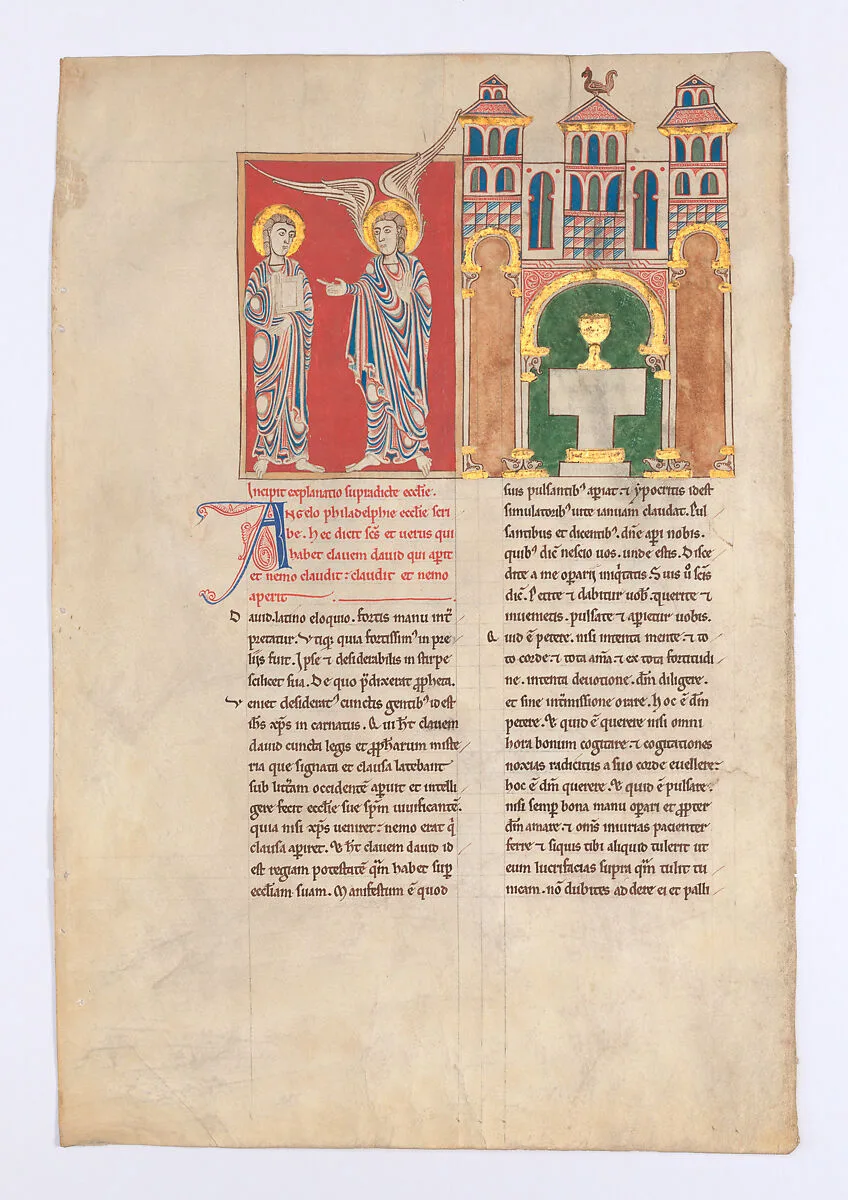 Incipit explanatio supradicte ecclie.
Angelo philadelphie ecclie scri
be. Hec dicit scs et uerus qui
habet clauem dauid qui apit
et nemo claudit: claudit et nemo
aperit
Dauid. latino eloquio. fortis manu int
pretatur. Utiq; quia fortissim' in pre
liis fuit. Ipse ⁊ desiderabilis in stirpe
scilicet sua. De quo pdixerat ppheta.
Veniet desiderat' cunctis gentib' id est
ihs xps in carnatus. Qui ht clauem
dauid cuncta legis et ppharum miste
ria que signata et clausa latebant
sub litteram occidente apuit et intelli
gere fecit ecclie sue spm uiuificante.
quia nisi xps ueniret: nemo erat q
clausa apiret. Et ht clauem dauid id
est regiam potestate qm habet sup
eccliam suam. Manifestum e quod
suis pulsantib' apiat. ⁊ ypocritis id est
simulatorib' uite ianuam claudat. Pul
santibus et dicentib'. dne api nobis.
quib' dic nescio uos. unde estis. Disce
dite a me operarii iniqitatis. Suis u scis
dic. Petite et dabitur uob. querite et
inuenietis. pulsate et apietur uobis.
Quid e petere. nisi intenta mente. ⁊ to
to corde. ⁊ tota ama. ⁊ ex tota fortitudi
ne. intenta deuotione. dm diligere.
et sine intmissione orare. Hoc e dm
petere. Et quid e querere nisi omni
hora bonum cogitare. ⁊ cogitationes
noxias radicitus a suo corde euellere:
hoc e dm querere. Et quid e pulsare.
nisi semp bona manu opari et ppter
dm amare. ⁊ oms iniurias pacienter
ferre ⁊ siquis tibi aliquid tulerit ut
eum lucrifacias supra qm tulit tu
nicam. no dubites ad dere ei et palli